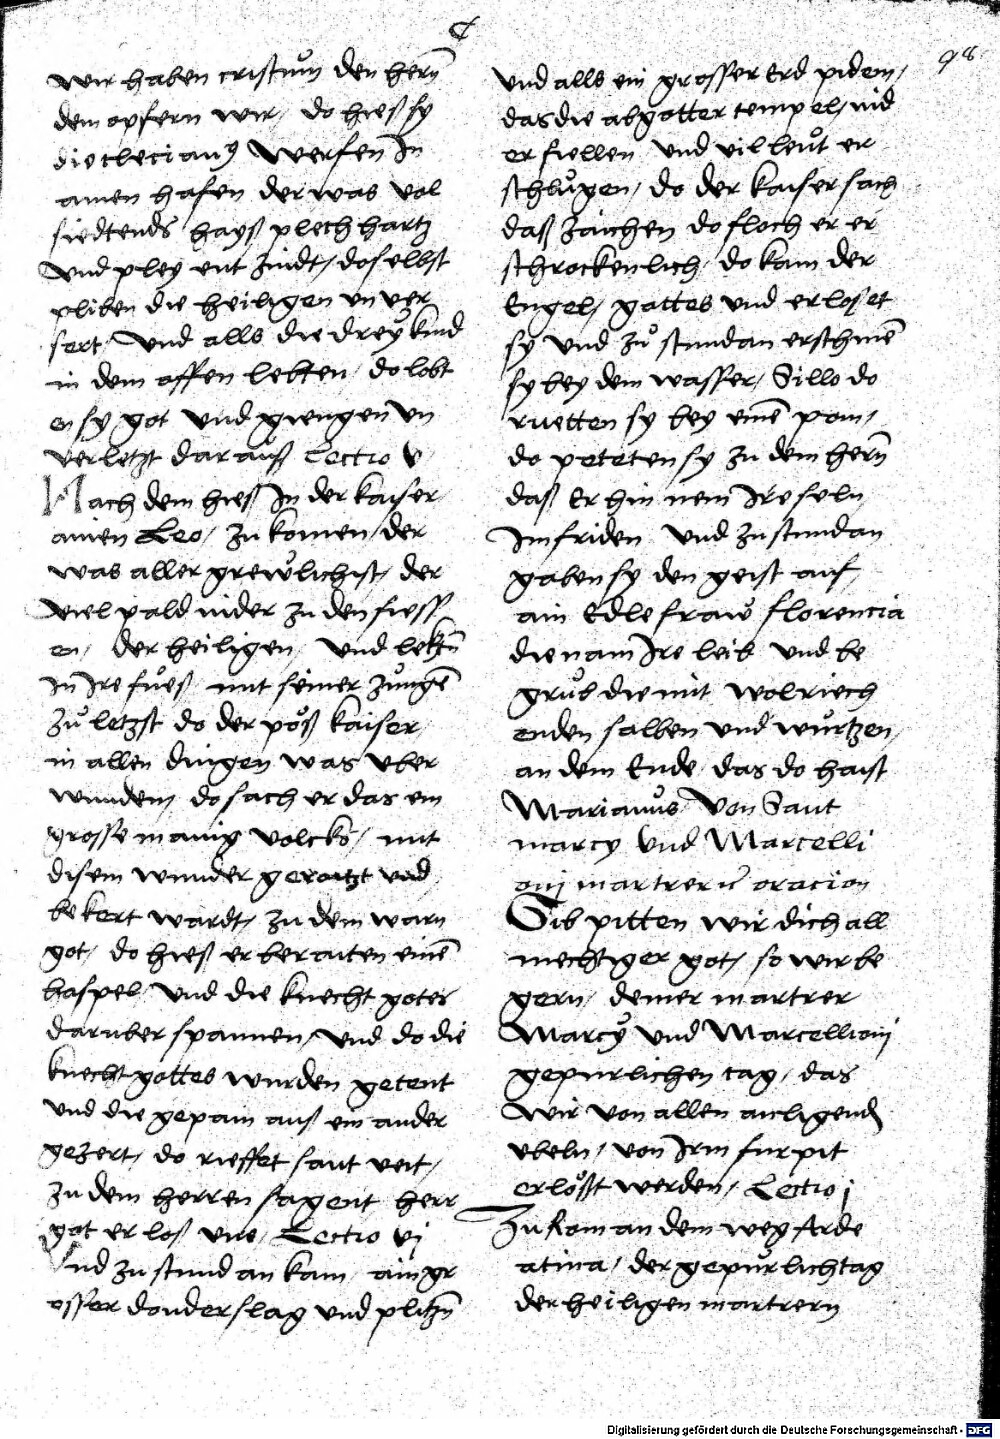 98
wir haben cristum den hern̄
dem opfern wir / do hieß sy
dieclecianꝰ Werfen In
ainen hafen der was vol
siedtends hayß plech hartz
Vnd pley ent zindt / doselbst
pliben die heiligen vn ver
sert / Vnd alls die dreÿ kind
in dem offen lebten / do lobt
en sy got vnd giengen vn
verletzt darauß Lectio v
Nach dem hieß In der kaiser
ainen Leo / zu komen / der
was aller grewlichist / der
viel pald nider zu den fiess
en / der heiligen / Vnd lektn̄
In Ire fües mit seiner zungē
Zu letzst do der pöß kaiser
in allen dingen was vber
wunden / do sach er das ein
grosse manig volcks / mit
disem wunder geraitzt vnd
bekert wardt / zu dem warn
got / do hieß er beraiten einē
haspel / Vnd die knecht gotes
daruber spannen / Vnd do die
knecht gottes wurden getent
Vnd die gepain auß ein ander
gezert / do rieffet sant veit /
zu dem herren sagent herr
got erloß vns / Lectio vj
Vnd zu stund an kam ain gr
osser donderslag vnd plitzn̄
Vnd alls ein grosser Erd pidem /
das die abgotter tempel / nid
er fiellen vnd vil leut er
schlugen / do der kaiser sach
daß zaichen do floch er er
schrockenlich / do kam der
Engel / gottes vnd erloset
sy vnd zu stundan erschinē
sy bey dem wasser / Sillo do
ruetten sy bey einē pom /
do peteten sy zu dem hern̄
daß Er hin nem Ire seln
Im friden Vnd zu stundan
gaben sy den geist auf /
ain Edle fraw florencia
die nam Ire leib vnd be
grub die mit wolriech
enden salben vnd wurtzen /
an dem Ende das do haist
Marianus Von Sant
marcy Vnd Marcelli
ani martrern oracion
Gib pitten wir dich all
mechtiger got / so wir be
gern / deiner martrer
Marcy vnd Marcelliani
gepurlichen tag / das
wir von allen anligendn
vbeln / von Irm furpit
erlößt werden / Lectio j
Zu Rom an dem weg Arde
atina / der gepurlich tag
der heiligen martrern
Digitalisierung gefördert durch die Deutsche Forschungsgemeinschaft - DFG